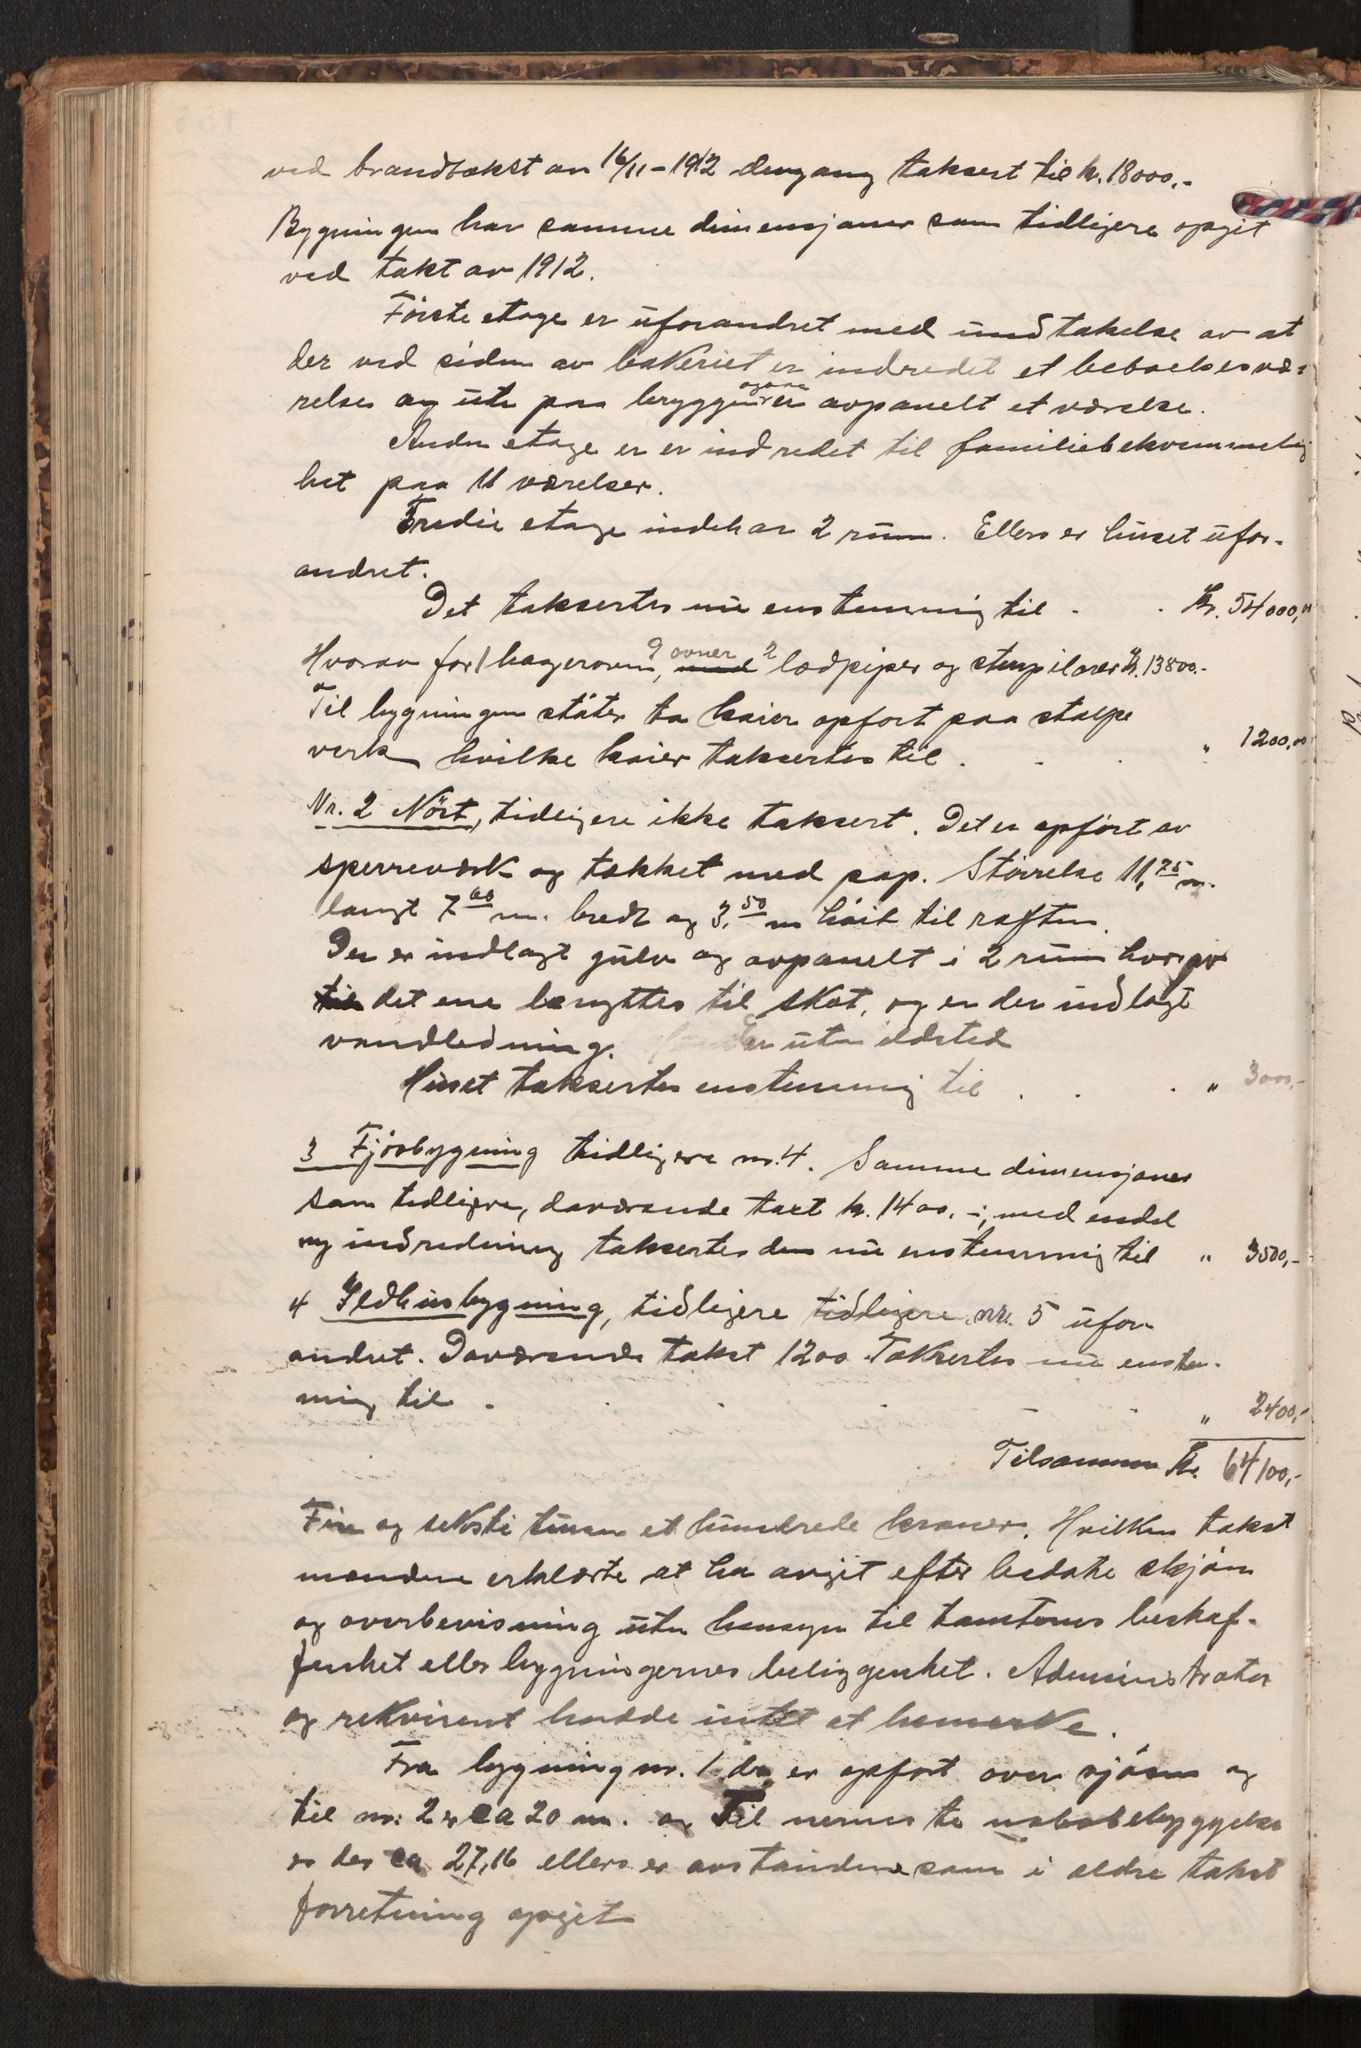 ved brandtakst av 16/11-1912 dengang taksert til kr. 18000,-
Bygningen har samme dimensjoner som tidligere opgit
ved takt av 1912.
Første etage er uforandret med undtakelse av at
der ved siden av bakeriet er indredet et beboelsesvæ-
relse og ute paa bryggen ogsaa er avpanelt et værelse.
Anden etage er er indredet til familiebekvemmelig
het paa 11 værelser.
Tredie etage indehar 2 rum. Ellers er huset ufor-
andret.
Det taksertes nu enstemmig til . . Kr. 54000,00
Hvorav for 1 bagerovn, 9 ovner 2 lodpiper og stenpilarer kr. 13800.-
Til bygningen støter to kaier opført paa stolpe
verk hvilke kaier taksertes til . . . " 1200,00
Nr. 2 Nöst, tidligere ikke taksert. Det er opført av
sperreværk og tækket med pap. Størrelse 11,75 m.
langt 7.00 m. bredt og 3.50 m høit til raften.
Der er indlagt gulv og avpanelt i 2 rum hvorav
det ene benyttes til skot, og er der indlagt
vandledning. er uten ildsted
Huset taksertes enstemmig til . . . " 3000,-
3 Fjøsbygning tidligere nr. 4. Samme dimensjoner
som tidligere, daværende taxt kr. 1400.-, med endel
ny indredning taksertes den nu enstemmig til " 3500,-
4 Ildhusbygning, tidligere tidligere nr. 5 ufor-
andret. Daværende takst 1200 Taksertes nu enstem-
mig til . . . . " 2400,-
Tilsammen Kr. 64100,-
Fire og seksti tusen et hundrede kroner. Hvilken takst
mændene erklærte at ha avgit efter bedste skjøn
og overbevisning uten hensyn til tomtenes beskaf-
fenhet eller bygningernes beliggenhet. Administrator
og rekvirent hadde intet at bemerke.
Fra bygning nr. 1 der er opført over sjøen og
til nr: 2 er ca 20 m. og Til nermeste nabobebyggelse
er der ca 27,16 ellers er avstandene som i eldre takst
forretning opgit